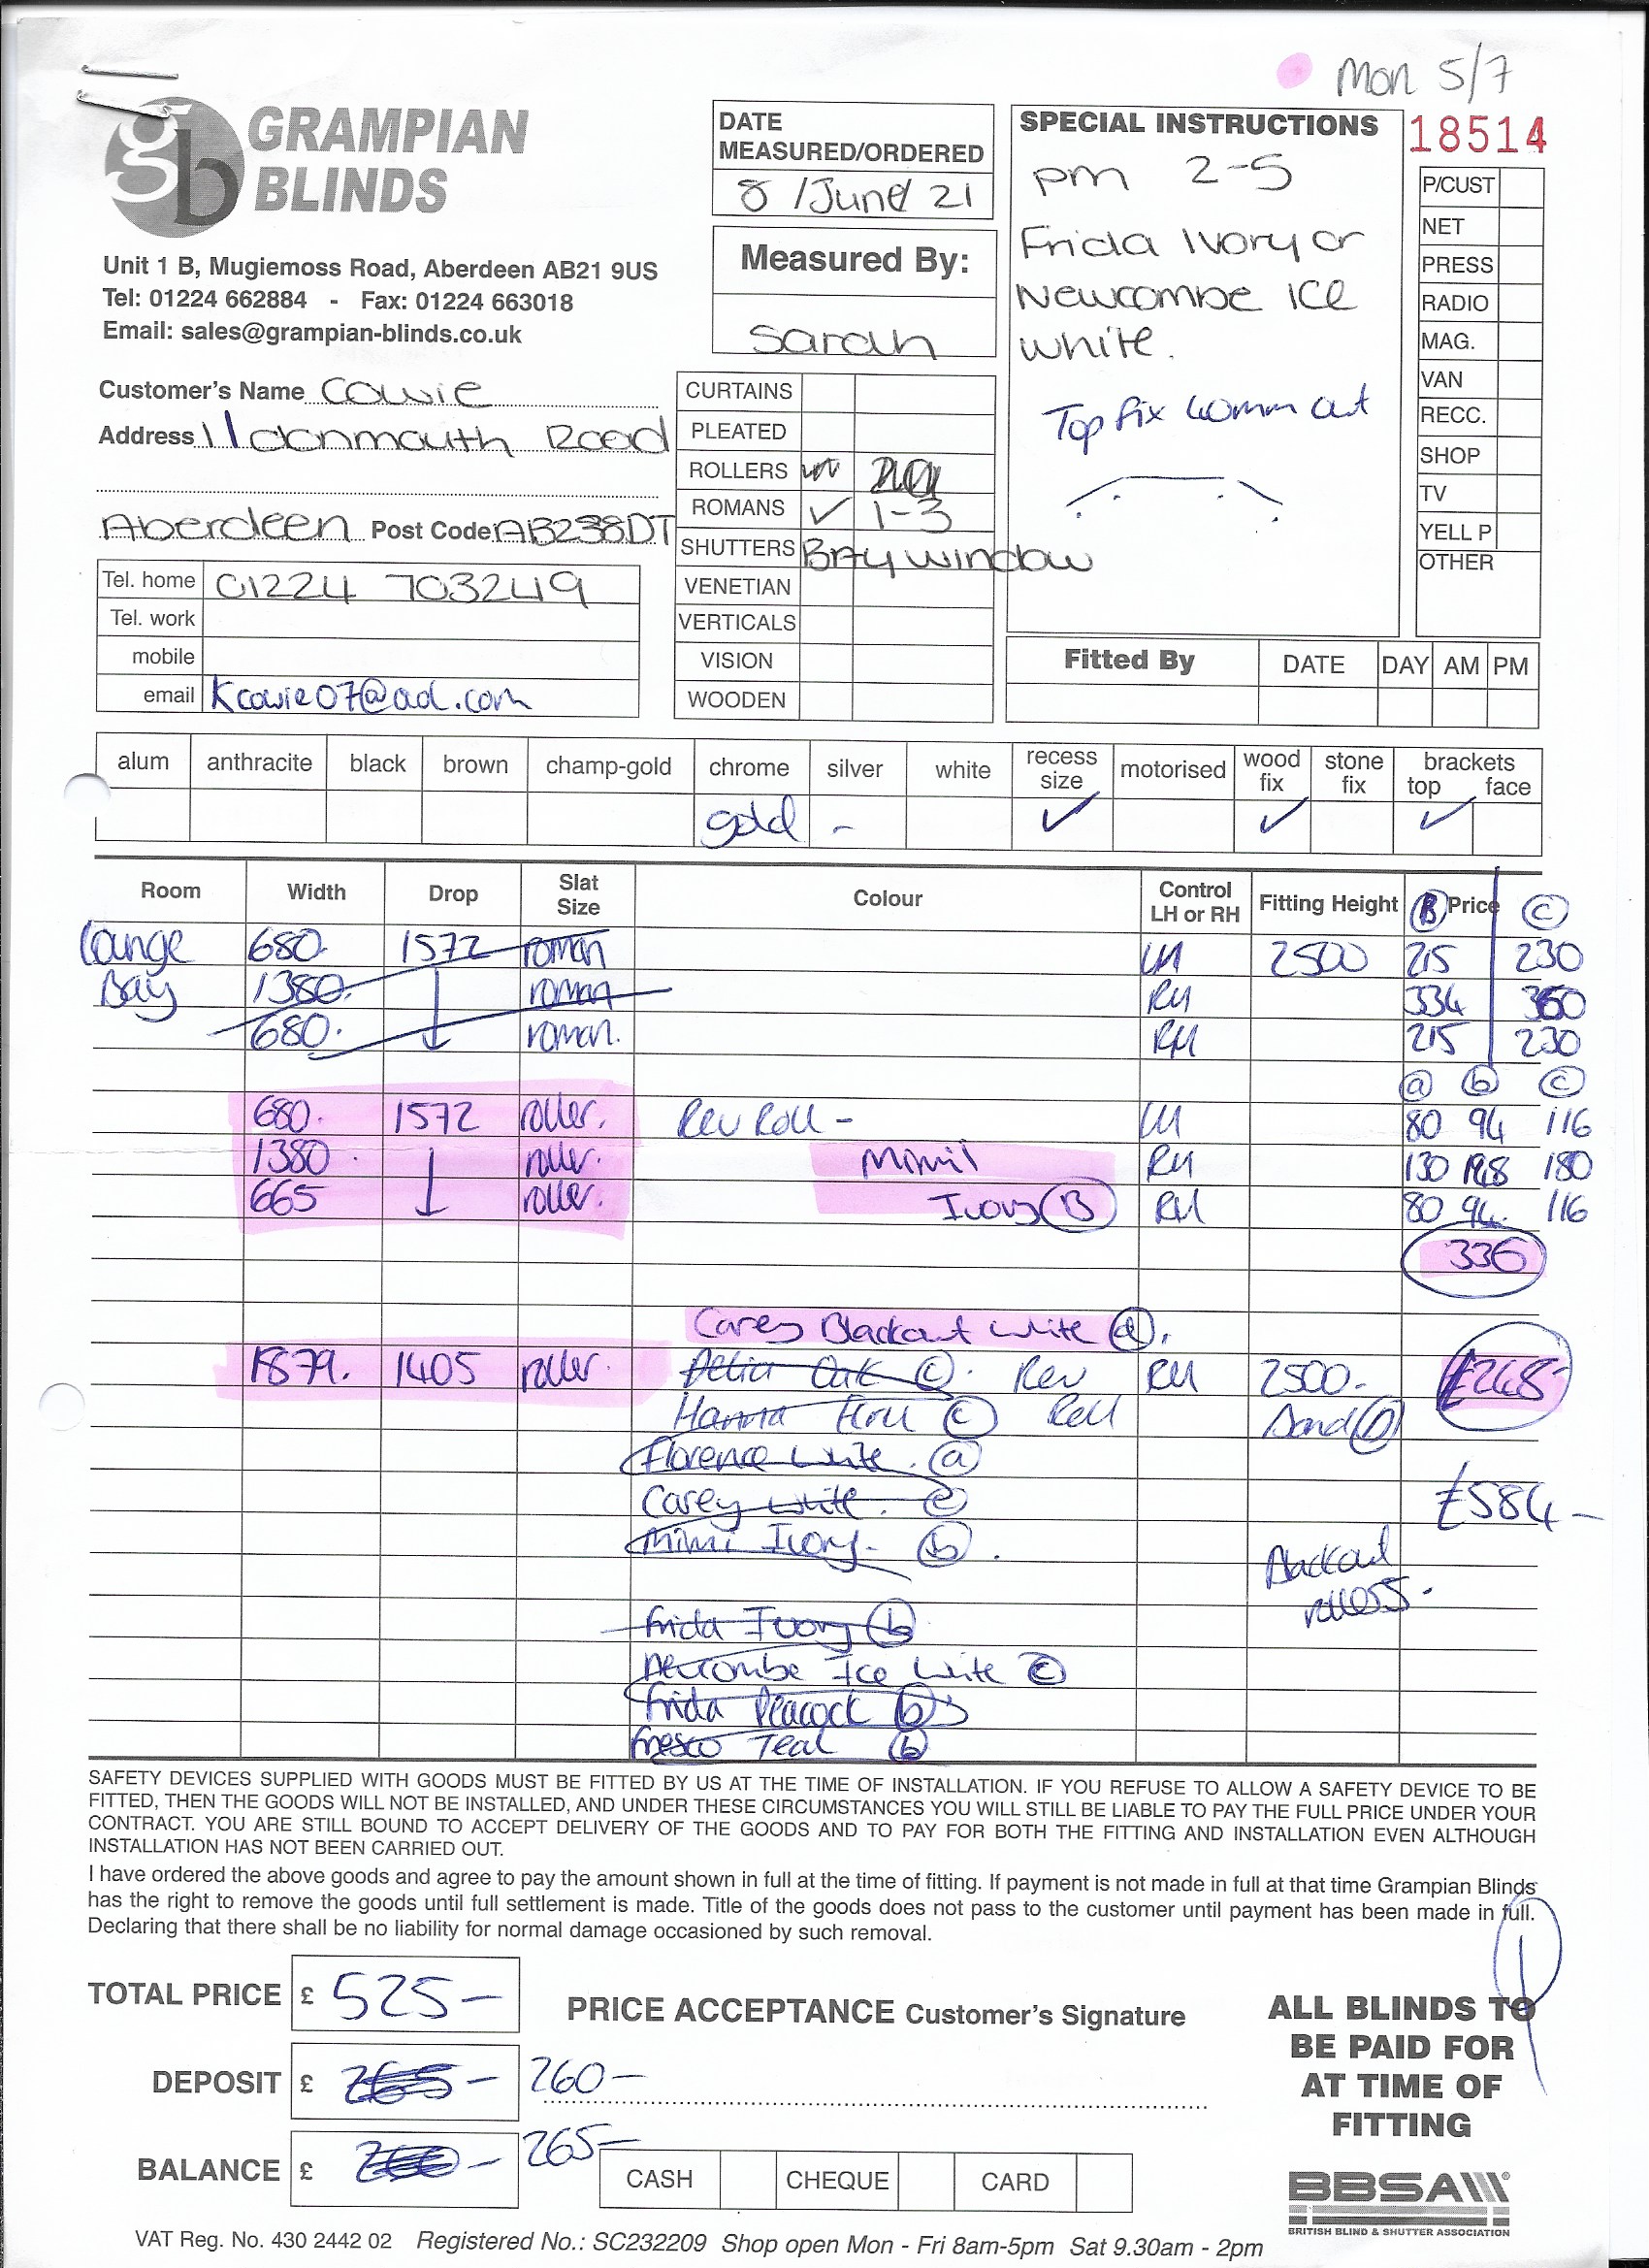 Mon 5/7
GRAMPIAN
BLINDS
Unit 1 B, Mugiemoss Road, Aberdeen AB21 9US
Tel: 01224 662884 - Fax: 01224 663018
Email: sales@grampian-blinds.co.uk
DATE
MEASURED/ORDERED
8 /June/ 21
Measured By:
Sarah
SPECIAL INSTRUCTIONS
pm 2-5
Frida Ivory or
Newcombe ICE
White.
Top fix 40mm out
18514
P/CUST
NET
PRESS
RADIO
MAG.
VAN
RECC.
SHOP
TV
YELL P
OTHER
Customer's Name Cowie
Address 11 donmouth Road
Aberdeen Post Code AB238DT
Tel. home 01224 703249
Tel. work
mobile
email Kcowie07@aol.com
CURTAINS
PLEATED
ROLLERS
ROMANS ✓ 1-3
SHUTTERS BAY window
VENETIAN
VERTICALS
VISION
WOODEN
Fitted By DATE DAY AM PM
alum anthracite black brown champ-gold chrome silver white recess size motorised wood fix stone fix brackets top face
gold - ✓ ✓ ✓
Room Width Drop Slat Size Colour Control LH or RH Fitting Height B Price C
Lounge 680. 1572 roman LH 2500 215 230
Bay 1380. roman RH 334 360
680. roman. RH 215 230
a b c
680. 1572 roller. Rev Roll - LH 80 94 116
1380. roller. Mimi RH 130 148 180
665 roller. Ivory B RH 80 94. 116
336
Carey Blackout White d.
1879. 1405 roller. Delia Oak C. Rev RH 2500. £248-
Hanna C Roll Band D
Florence White. a
Carey White. c
£584-
Mimi Ivory- b.
Blackout
rollers.
Frida Ivory b
Newcombe Ice White C
Frida Peacock b
Fresco Teal b
SAFETY DEVICES SUPPLIED WITH GOODS MUST BE FITTED BY US AT THE TIME OF INSTALLATION. IF YOU REFUSE TO ALLOW A SAFETY DEVICE TO BE
FITTED, THEN THE GOODS WILL NOT BE INSTALLED, AND UNDER THESE CIRCUMSTANCES YOU WILL STILL BE LIABLE TO PAY THE FULL PRICE UNDER YOUR
CONTRACT. YOU ARE STILL BOUND TO ACCEPT DELIVERY OF THE GOODS AND TO PAY FOR BOTH THE FITTING AND INSTALLATION EVEN ALTHOUGH
INSTALLATION HAS NOT BEEN CARRIED OUT.
I have ordered the above goods and agree to pay the amount shown in full at the time of fitting. If payment is not made in full at that time Grampian Blinds
has the right to remove the goods until full settlement is made. Title of the goods does not pass to the customer until payment has been made in full.
Declaring that there shall be no liability for normal damage occasioned by such removal.
TOTAL PRICE £ 525-
PRICE ACCEPTANCE Customer's Signature
DEPOSIT £ 265- 260-
BALANCE £ 260- 265-
CASH CHEQUE CARD
ALL BLINDS TO
BE PAID FOR
AT TIME OF
FITTING
BBSA
BRITISH BLIND & SHUTTER ASSOCIATION
VAT Reg. No. 430 2442 02 Registered No.: SC232209 Shop open Mon - Fri 8am-5pm Sat 9.30am - 2pm